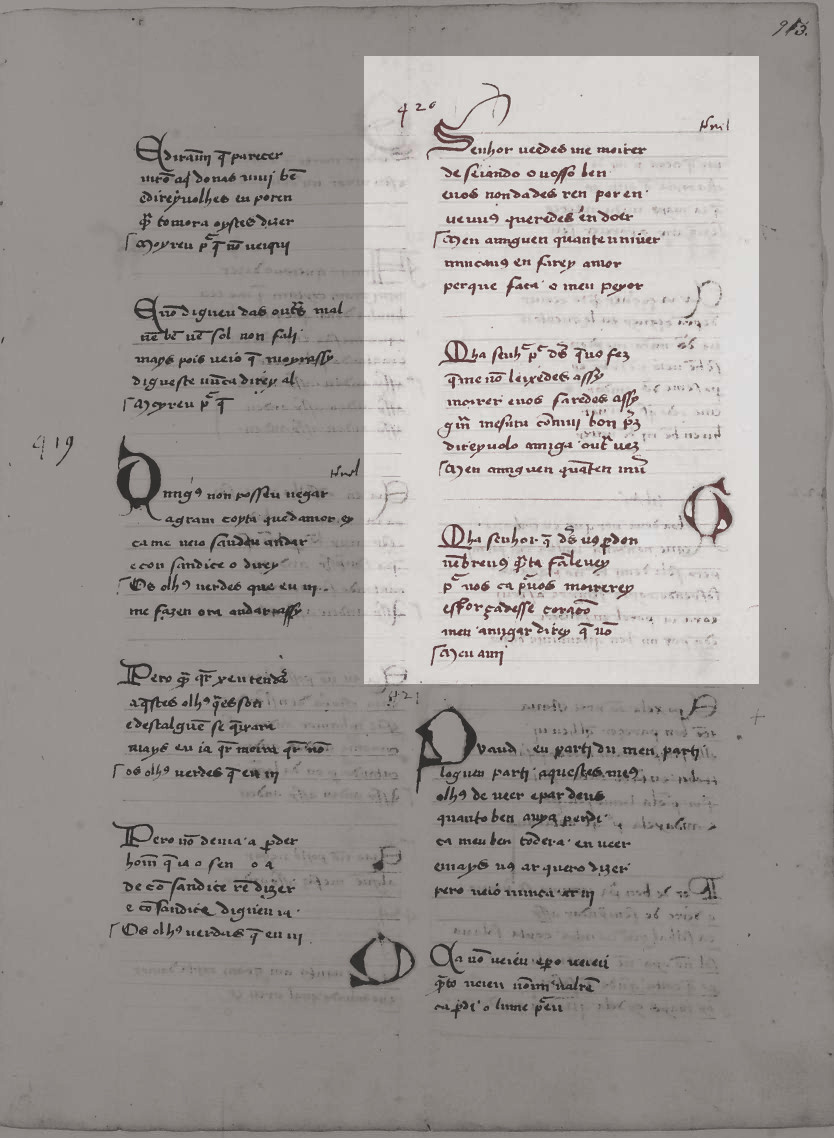 913.
Ediram̄ q̄ parecer
uirō aq̄ donas uiui bē
edireyuolhes eu poren
q̄ tomora oystes dizer
Moyreu p̄ q̄ nō ueiqui
Enō digueu das out̃s mal
nē bē nē sol non fali
mays pois ueio q̄ moyrassy
digueste nūca direy al
Moyreu p̄ q̄
419
Amigꝯ non posseu negar
a gram coyta que damor ey
ca me ueio sandeu andar
e con sandice o direy
Os olhꝯ uerdes que eu ui
me fazen ora andar assy
Pero q̄ q̄r xentenda
aq̄stes olhꝯ q̄es son
edestalguē se q̄ixara
mays eu ia q̄r moira q̄r nō
os olhꝯ uerdes q̄ eu ui
Pero nō deuia a ꝑder
hom̄ q̄ ia o sen o a
de cō sandice rē dizer
e cō sandice digueu ia
Os olhꝯ uerdes q̄ eu ui
420
Senhor ueedes me moirer
deseiando o uosso ben
euos nondades ren por en
ue uus queredes en doer
Meu amiguen quanteu uiuer
nuncauꝯ eu farey amor
per que faca o meu peyor
Mha senh̃ p̄ d̄s q̄uꝯ fez
q̄me nō leixedes assy
moirer euos faredes assy
gm̄ mesura cōmui bon p̃z
direyuolo amiga out̃ uez
Meu amiguen quāten uiū
Mha senhor q̄ d̄s uꝯ ꝑdon
nēbreuꝯ q̄ta fāleuey
p̄ uos ca p̄uos moirerey
esforçadesse coraçō
meu amigar direy q̄ nō
Meu ami
421
Quand eu parti du meu parti
logueu parti aquestes meꝯ
olhꝯ de ueer epar deus
quanto ben auya perdi
ca meu ben tōdera en ueer
emays uꝯ ar quero dizer
pero ueio nunca ar ui
Ca nō ueieu epero ueieu
q̄to ueieu nōmi ual rē
ca ꝑdi o lume p̄eu